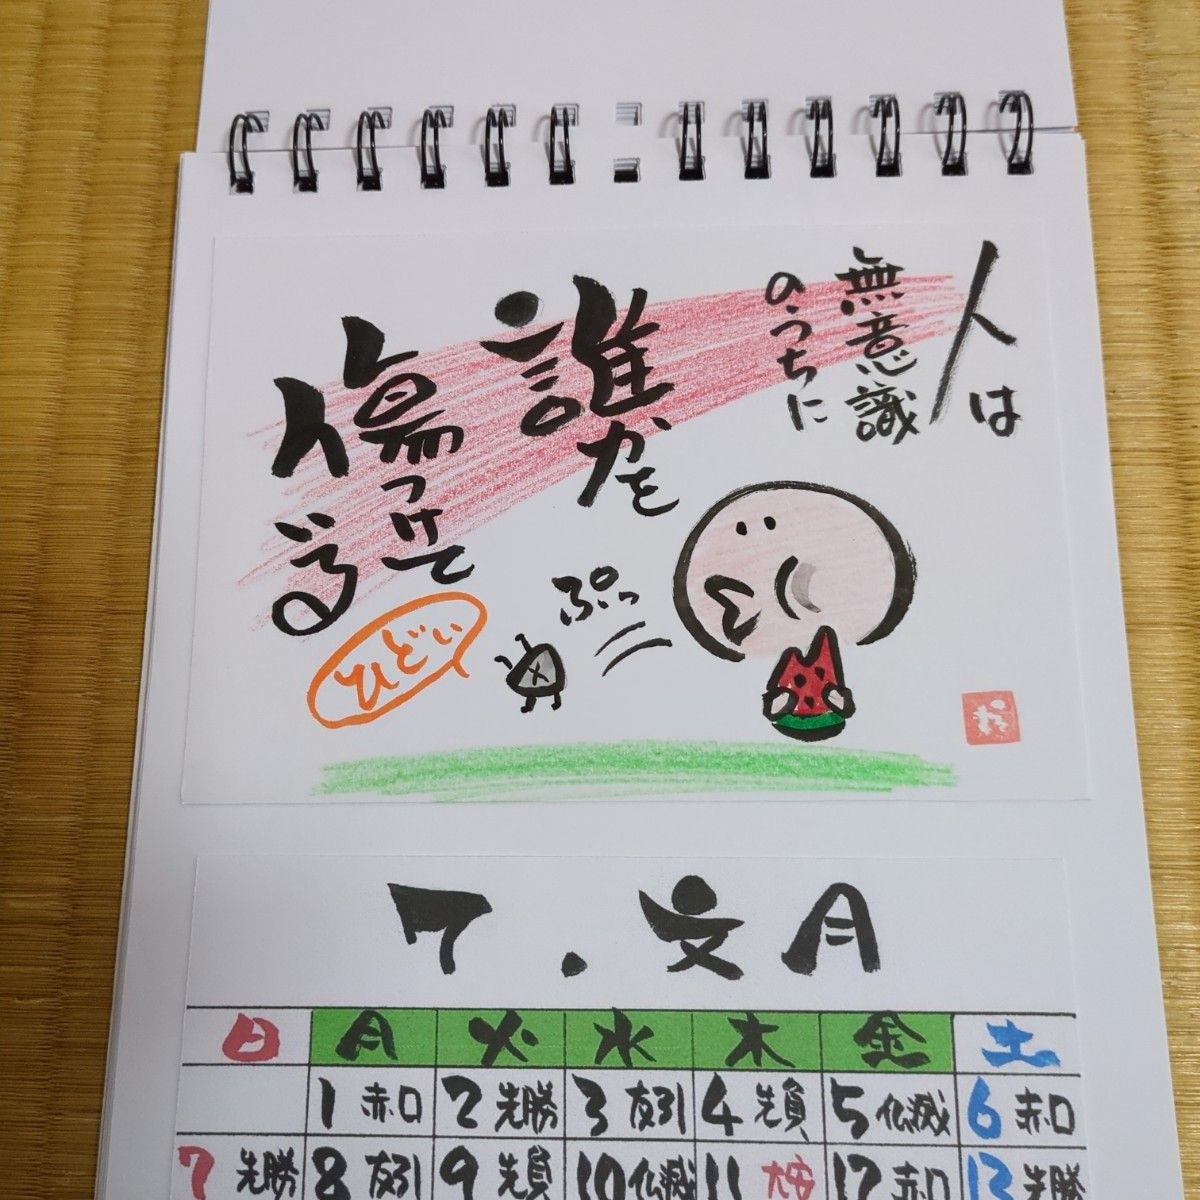 人は
無意識
のうちに
誰かを
傷つけて
いる
ぷっ
ひどい
7.文月
日 月 火 水 木 金 土
1 赤口 2 先勝 3 友引 4 先負 5 仏滅 6 赤口
7 先勝 8 友引 9 先負 10 仏滅 11 大安 12 赤口 13 先勝